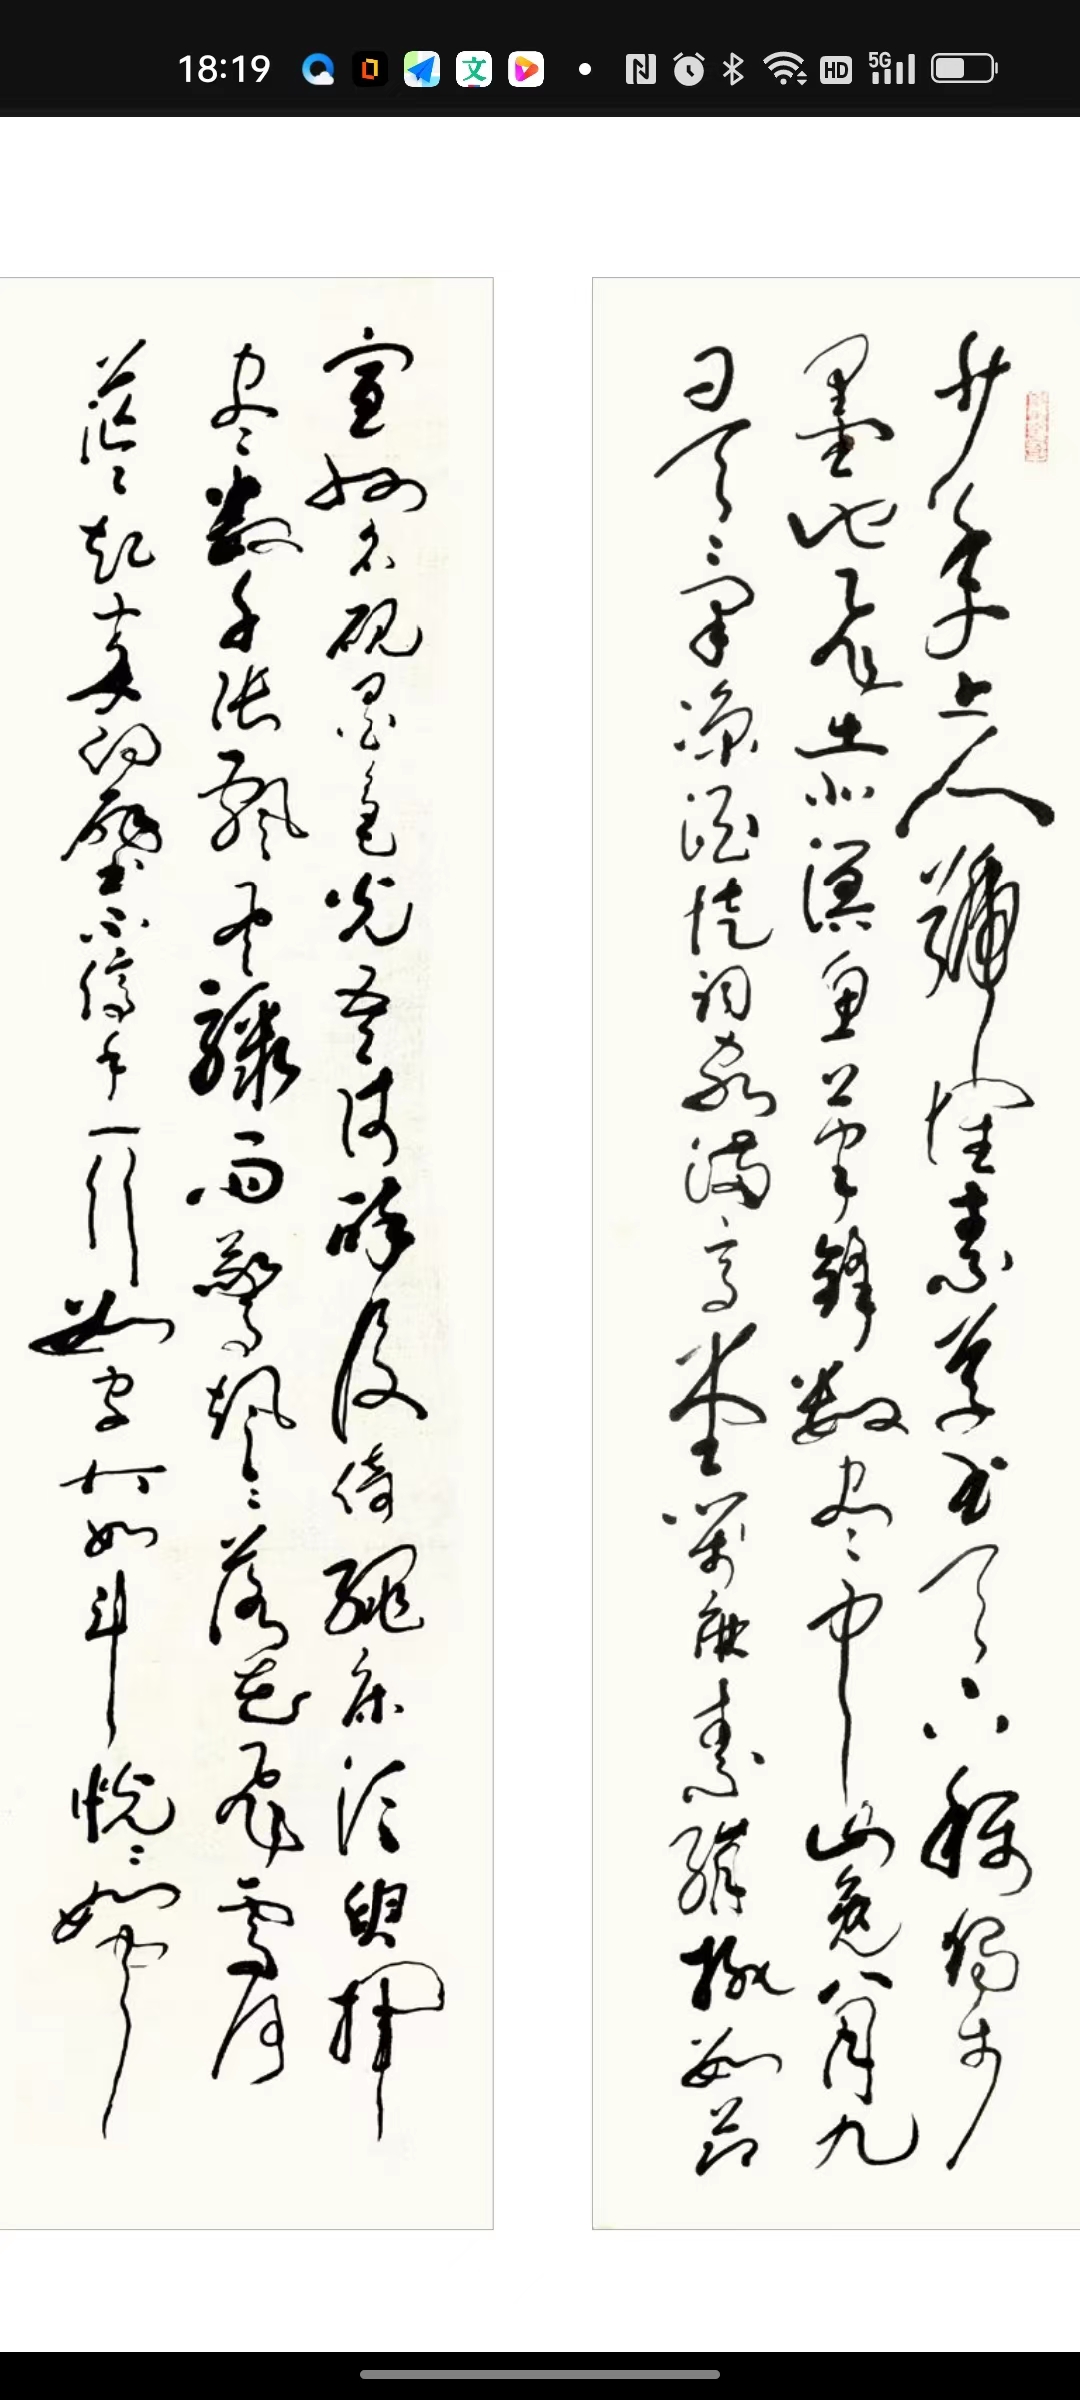 18:19 文 HD 5G
少年上人號懷素草書天下稱獨步
墨池飛出北溟魚筆鋒殺盡中山兔八月九
月天氣涼酒徒詞客滿高堂箋麻素絹排數廂
宣州石硯墨色光吾師醉後倚繩床須臾掃
盡數千張飄風驟雨驚颯颯落花飛雪何
茫茫起來向壁不停手一行數字大如斗恍恍如聞